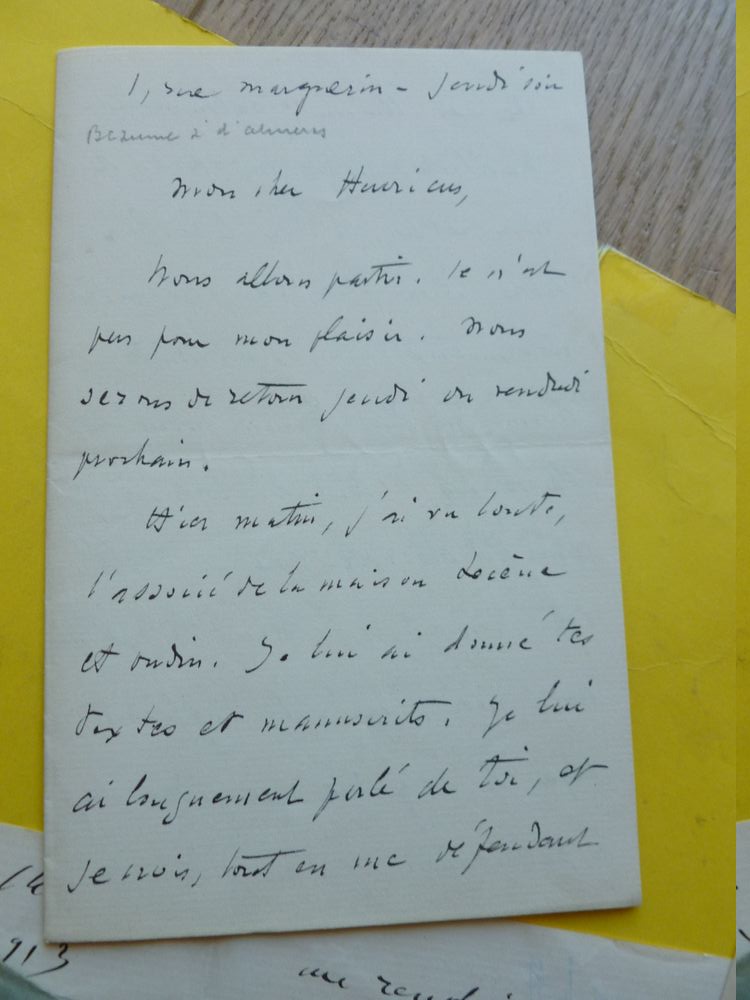 1, rue marguerin - Jeudi soir
Mon cher Henricus,
Nous allons partir. Ce n'est
pas pour mon plaisir. Nous
serons de retour jeudi ou vendredi
prochain.
Hier matin, j'ai vu
l'associé de la maison Lecène
et oudin. Je lui ai donné tes
textes et manuscrits. Je lui
ai longuement parlé de toi, et
je crois, tout en me défendant
913
un